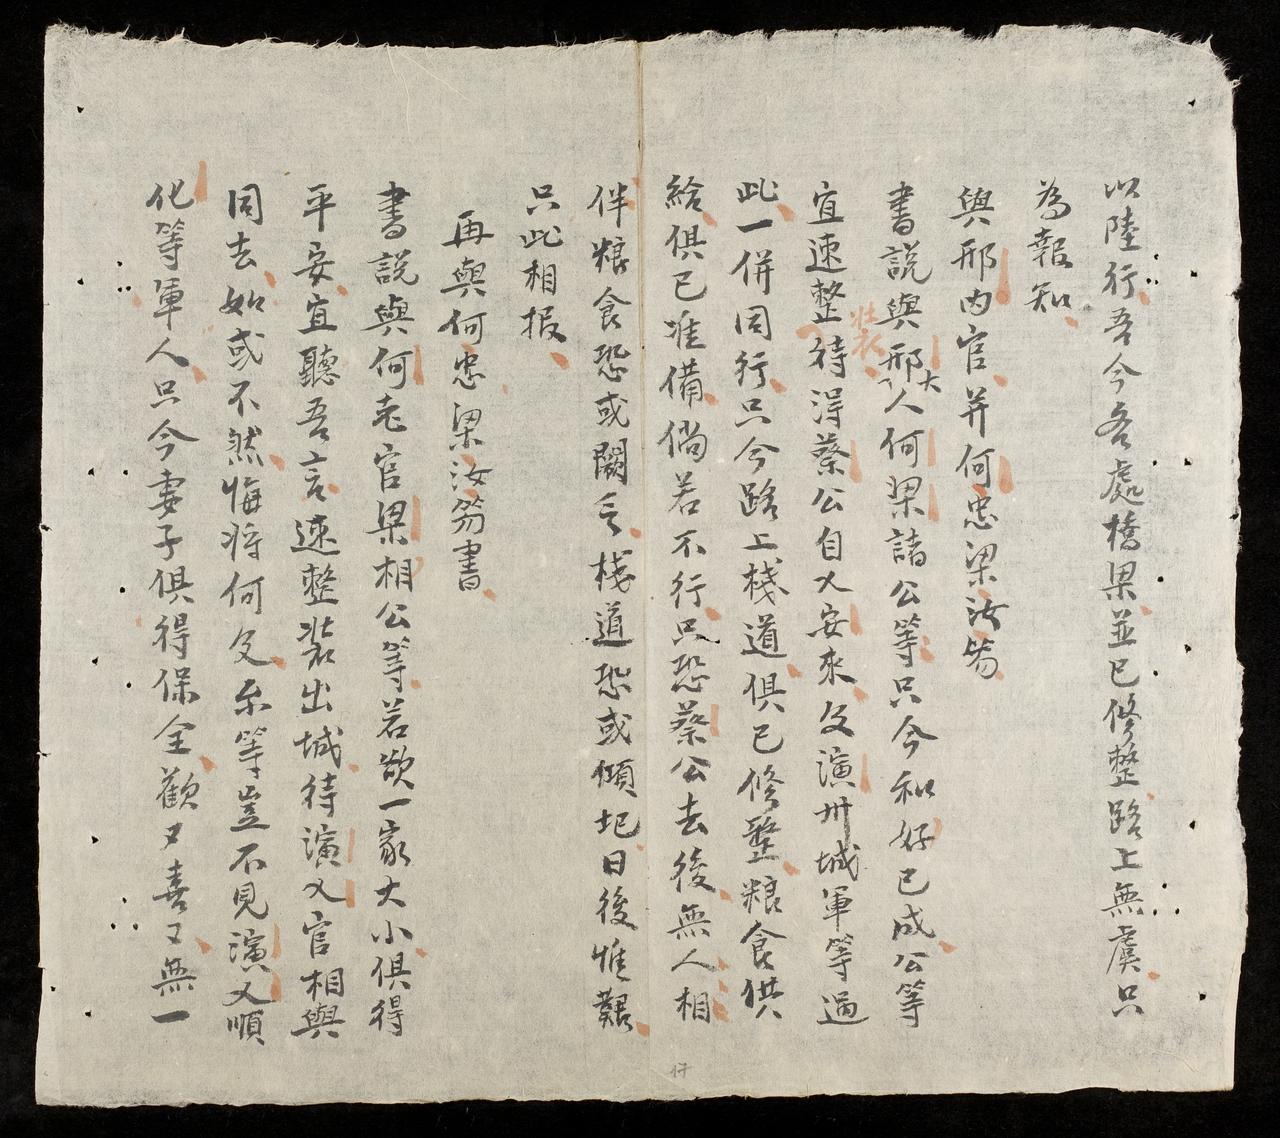 以陸行吾今各處橋梁並已修整路上無虞只
為報知
與邢內官并何忠梁汝笏
書説與邢大人何梁諸公等只今和好已成公等
宜速整裝待得蔡公自乂安來及演州城軍等過
此一併同行只今路上棧道俱已修整粮食供
給俱已准備倘若不行只恐蔡公去後無人相
伴粮食恐或闕乏棧道恐或傾圯日後惟艱
只此相报
再與何忠梁汝笏書
書説與何老官梁相公等若欲一家大小俱得
平安宜聽吾言速整裝出城待演乂官相與
同去如或不然悔将何及尔等豈不見演乂順
化等軍人只今妻子俱得保全歡又喜又無一